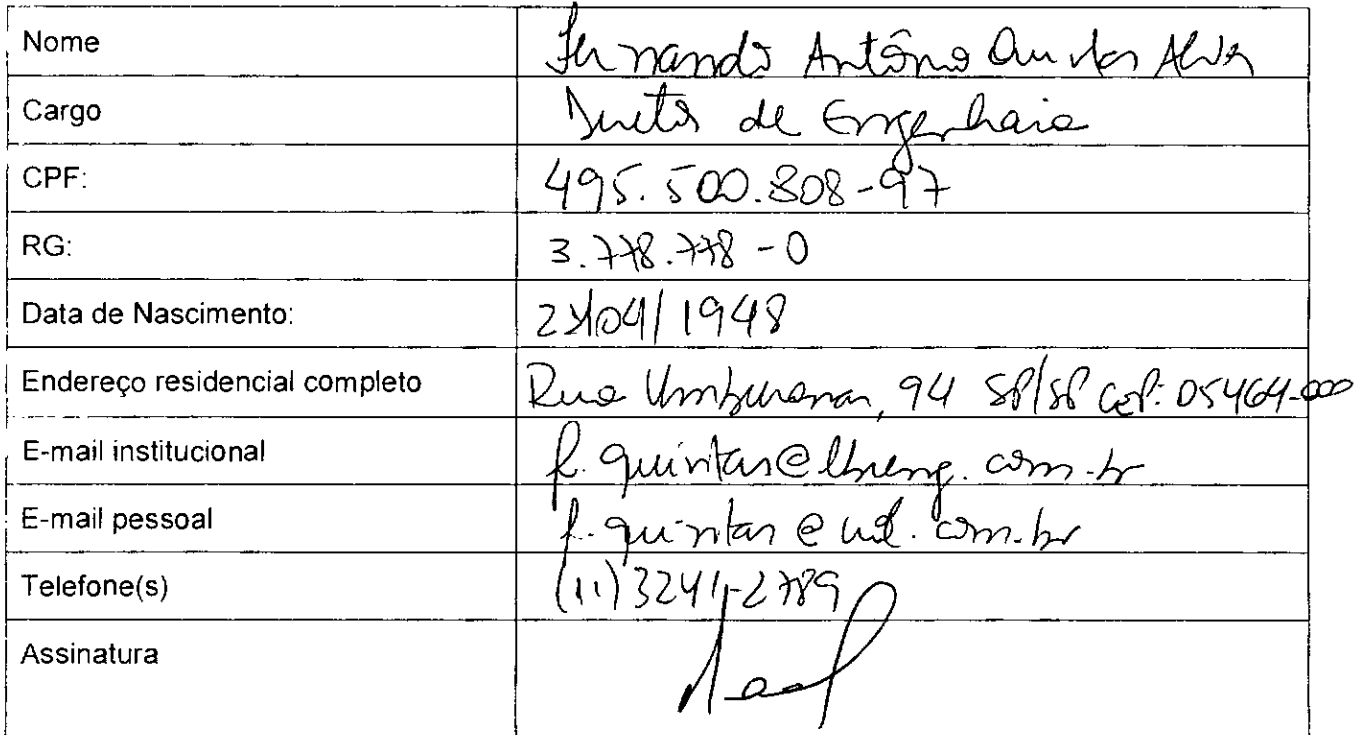 Nome Fernando Antônio Quintas Alves
Cargo Diretor de Engenharia
CPF: 495.500.808-97
RG: 3.778.778-0
Data de Nascimento: /04/1948
Endereço residencial completo Rua Umburanas, 94 SP/SP CEP: 05464-000
E-mail institucional f.quintas@lbreng.com.br
E-mail pessoal f.quintas@uol.com.br
Telefone(s) (11)3241-2789
Assinatura